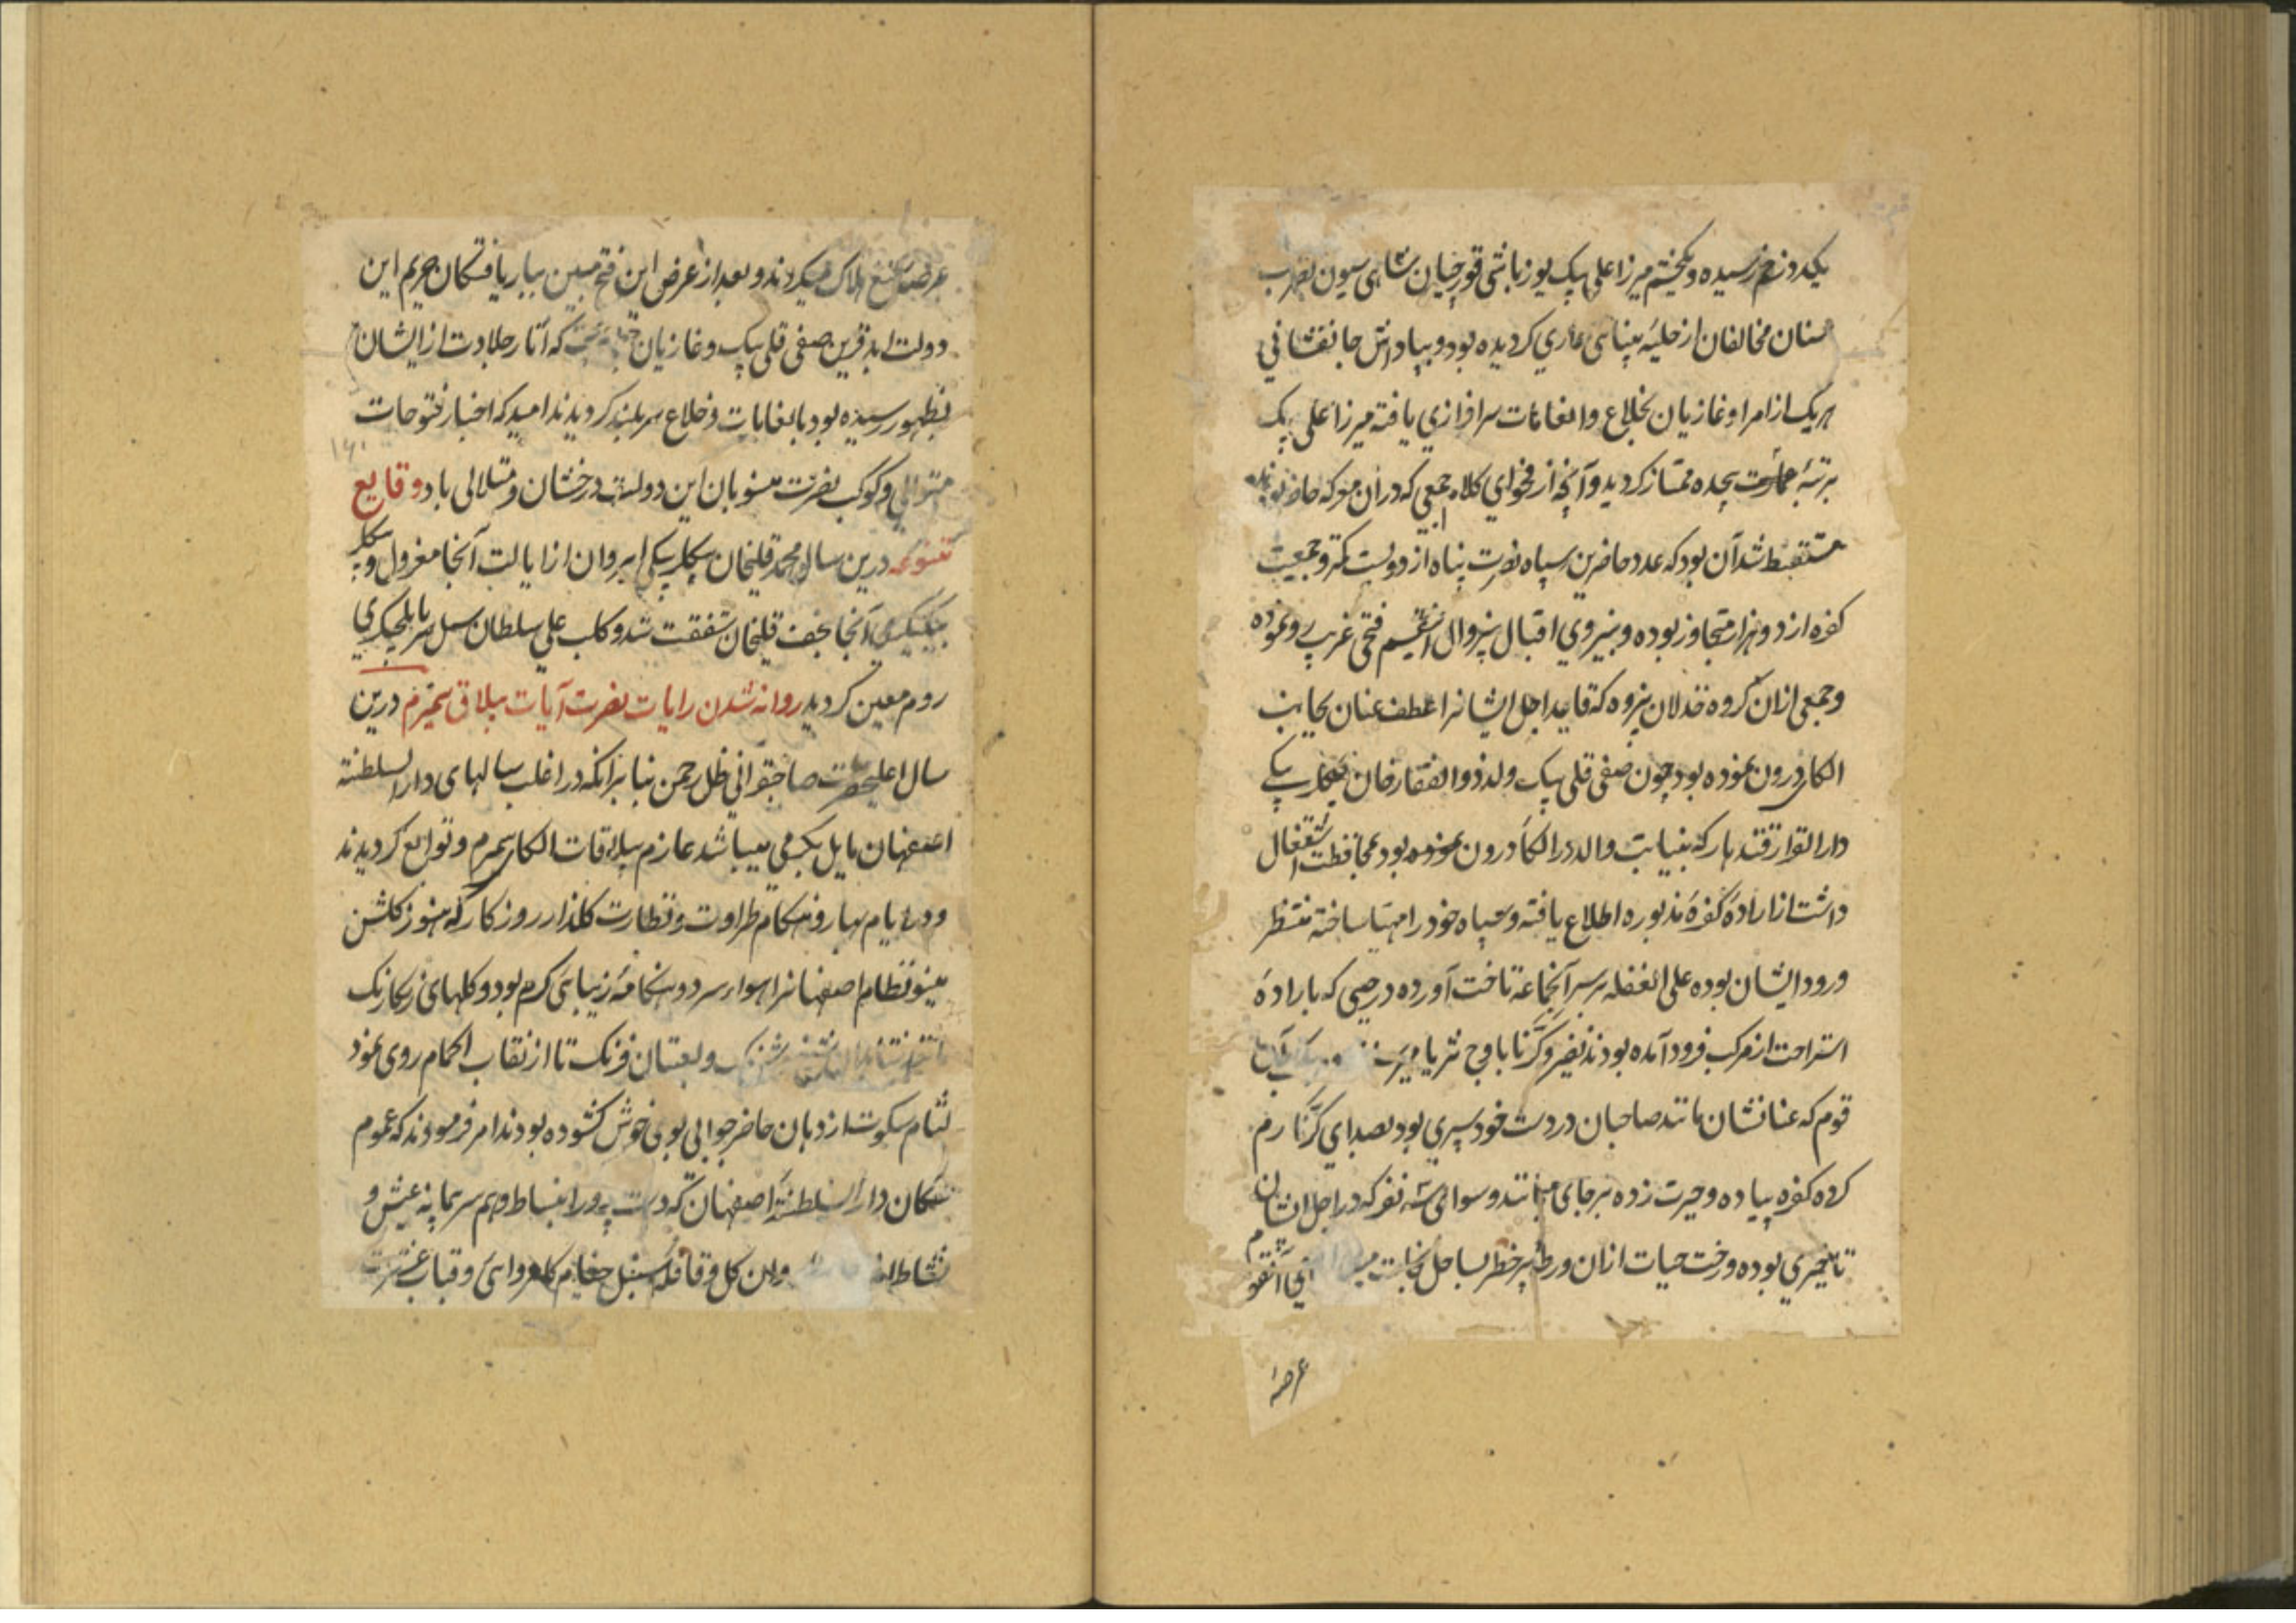 یکدو زخم رسیده و یکچشم میرزا علی بیک یوزباشی قورچیان شاهی سیون بضرب
سنان مخالفان از حلیهٔ بینائی عاری کردیده بود و بپاداش جانفشانی
هریک از امرا و غازیان بخلاع و انعامات سرافرازی یافته میرزا علی بیک
برتبهٔ ممتاز کردید و آنچه از فحوای کلام جمعی که در آن معرکه حاضر بودند
مستنبط شد آن بود که عدد حاضرین سپاه نصرت پناه از دویست کمتر و جمعیت
کفره از دو هزار متجاوز بوده و بنیروی اقبال بیزوال فتحی غریب رو نموده
و جمعی از آن کروه خذلان پژوه که قاید اجل ایشانرا عطف عنان بجانب
الکای درون نموده بود چون صفی قلی بیک ولد ذوالفقار خان بیکلربیکی
دار القرار قندهار که بنیابت والد در الکاء درون بوده بود بمحافظت اشتغال
داشت از ارادهٔ کفرهٔ مذبوره اطلاع یافته و سپاه خود را مهیا ساخته منتظر
ورود ایشان بوده علی الغفله بر سر آنجماعه تاخت آورده در حینی که بارادهٔ
استراحت از مرکب فرود آمده بودند نفیر و کرنا باوج ثریا
قوم که عنانشان مانند صاحبان در دست خودسری بود بصدای کرنا رم
کرده کفره پیاده و حیرت زده بر جای میمانند و سوای سه نفر که در اجل ایشان
تاخیری بوده و رخت حیات از آن ورطهٔ پر خطر بساحل نجات
عرصهٔ
عرصهٔ تیغ هلاک میکردند و بعد از عرض این فتح مبین ببار یافتکان حریم این
دولت ابد قرین صفی قلی بیک و غازیان که آثار جلادت از ایشان
بظهور رسیده بود بانعامات و خلاع سربلند کردیدند امید که اخبار فتوحات
متوالی و کوکب نصرت منسوبان این دولت درخشان و متلالی باد وقایع
متنوعه درین سال محمد قلیخان بیکلربیکی ایروان از ایالت آنجا معزول و بیکلر
بیکیکری آنجا بنجف قلیخان شفقت شد و کلب علی سلطان سیل سپر بایلچیکری
روم معین کردید روانه شدن رایات نصرت آیات ییلاق سمیرم درین
سال اعلیحضرت صاحبقرانی ظل رحمن بنا بر آنکه در اغلب سالهای دار السلطنه
اصفهان مایل بکرمی میباشد عازم ییلاقات الکای سمیرم و توابع کردیدند
و در ایام بهار و هنکام طراوت و نضارت کلزار روزکار که هنوز کلشن
مینو نظام اصفهانرا هواء سرد و هنکامهٔ زیبائی کرم بود و کلهای رنکارنک
و لعبتان فرنک تا از نقاب اکمام روی نمود
لثام سکوت از دهان حاضر جوابی بوی خوش کشوده بودند امر فرمودند که عموم
سکان دار السلطنهٔ اصفهان که دست پرور انبساط و هم سرمایه عیش و
نشاط اند وان کل و قافله سنبل خیام کلهروائی و قباب عشرت